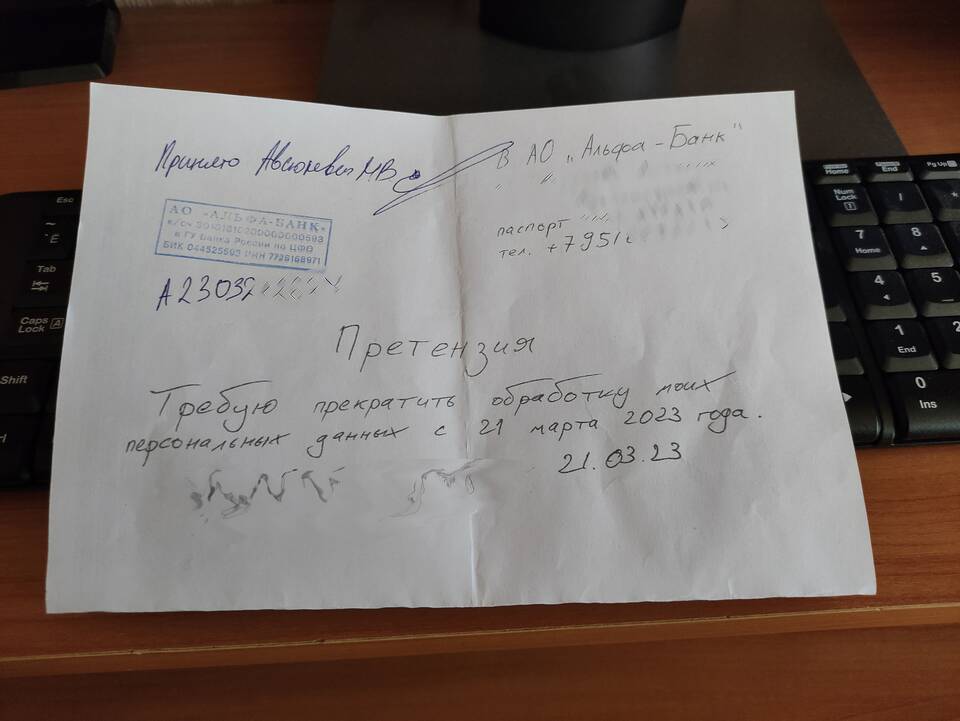 Принято Авсюкевич МВ
АО «АЛЬФА-БАНК»
к/сч 30101810200000000593
в ГУ Банка России по ЦФО
БИК 044525593 ИНН 7728168971
А23032
В АО „Альфа-Банк"
паспорт
тел. +7951
Претензия
Требую прекратить обработку моих
персональных данных с 21 марта 2023 года.
21.03.23
Esc
~
Ё
Tab
Caps
Lock A
Shift
Home
End
Pg Up
Num
Lock
1
/
*
7
Home
8
4
5
1
End
2
0
Ins